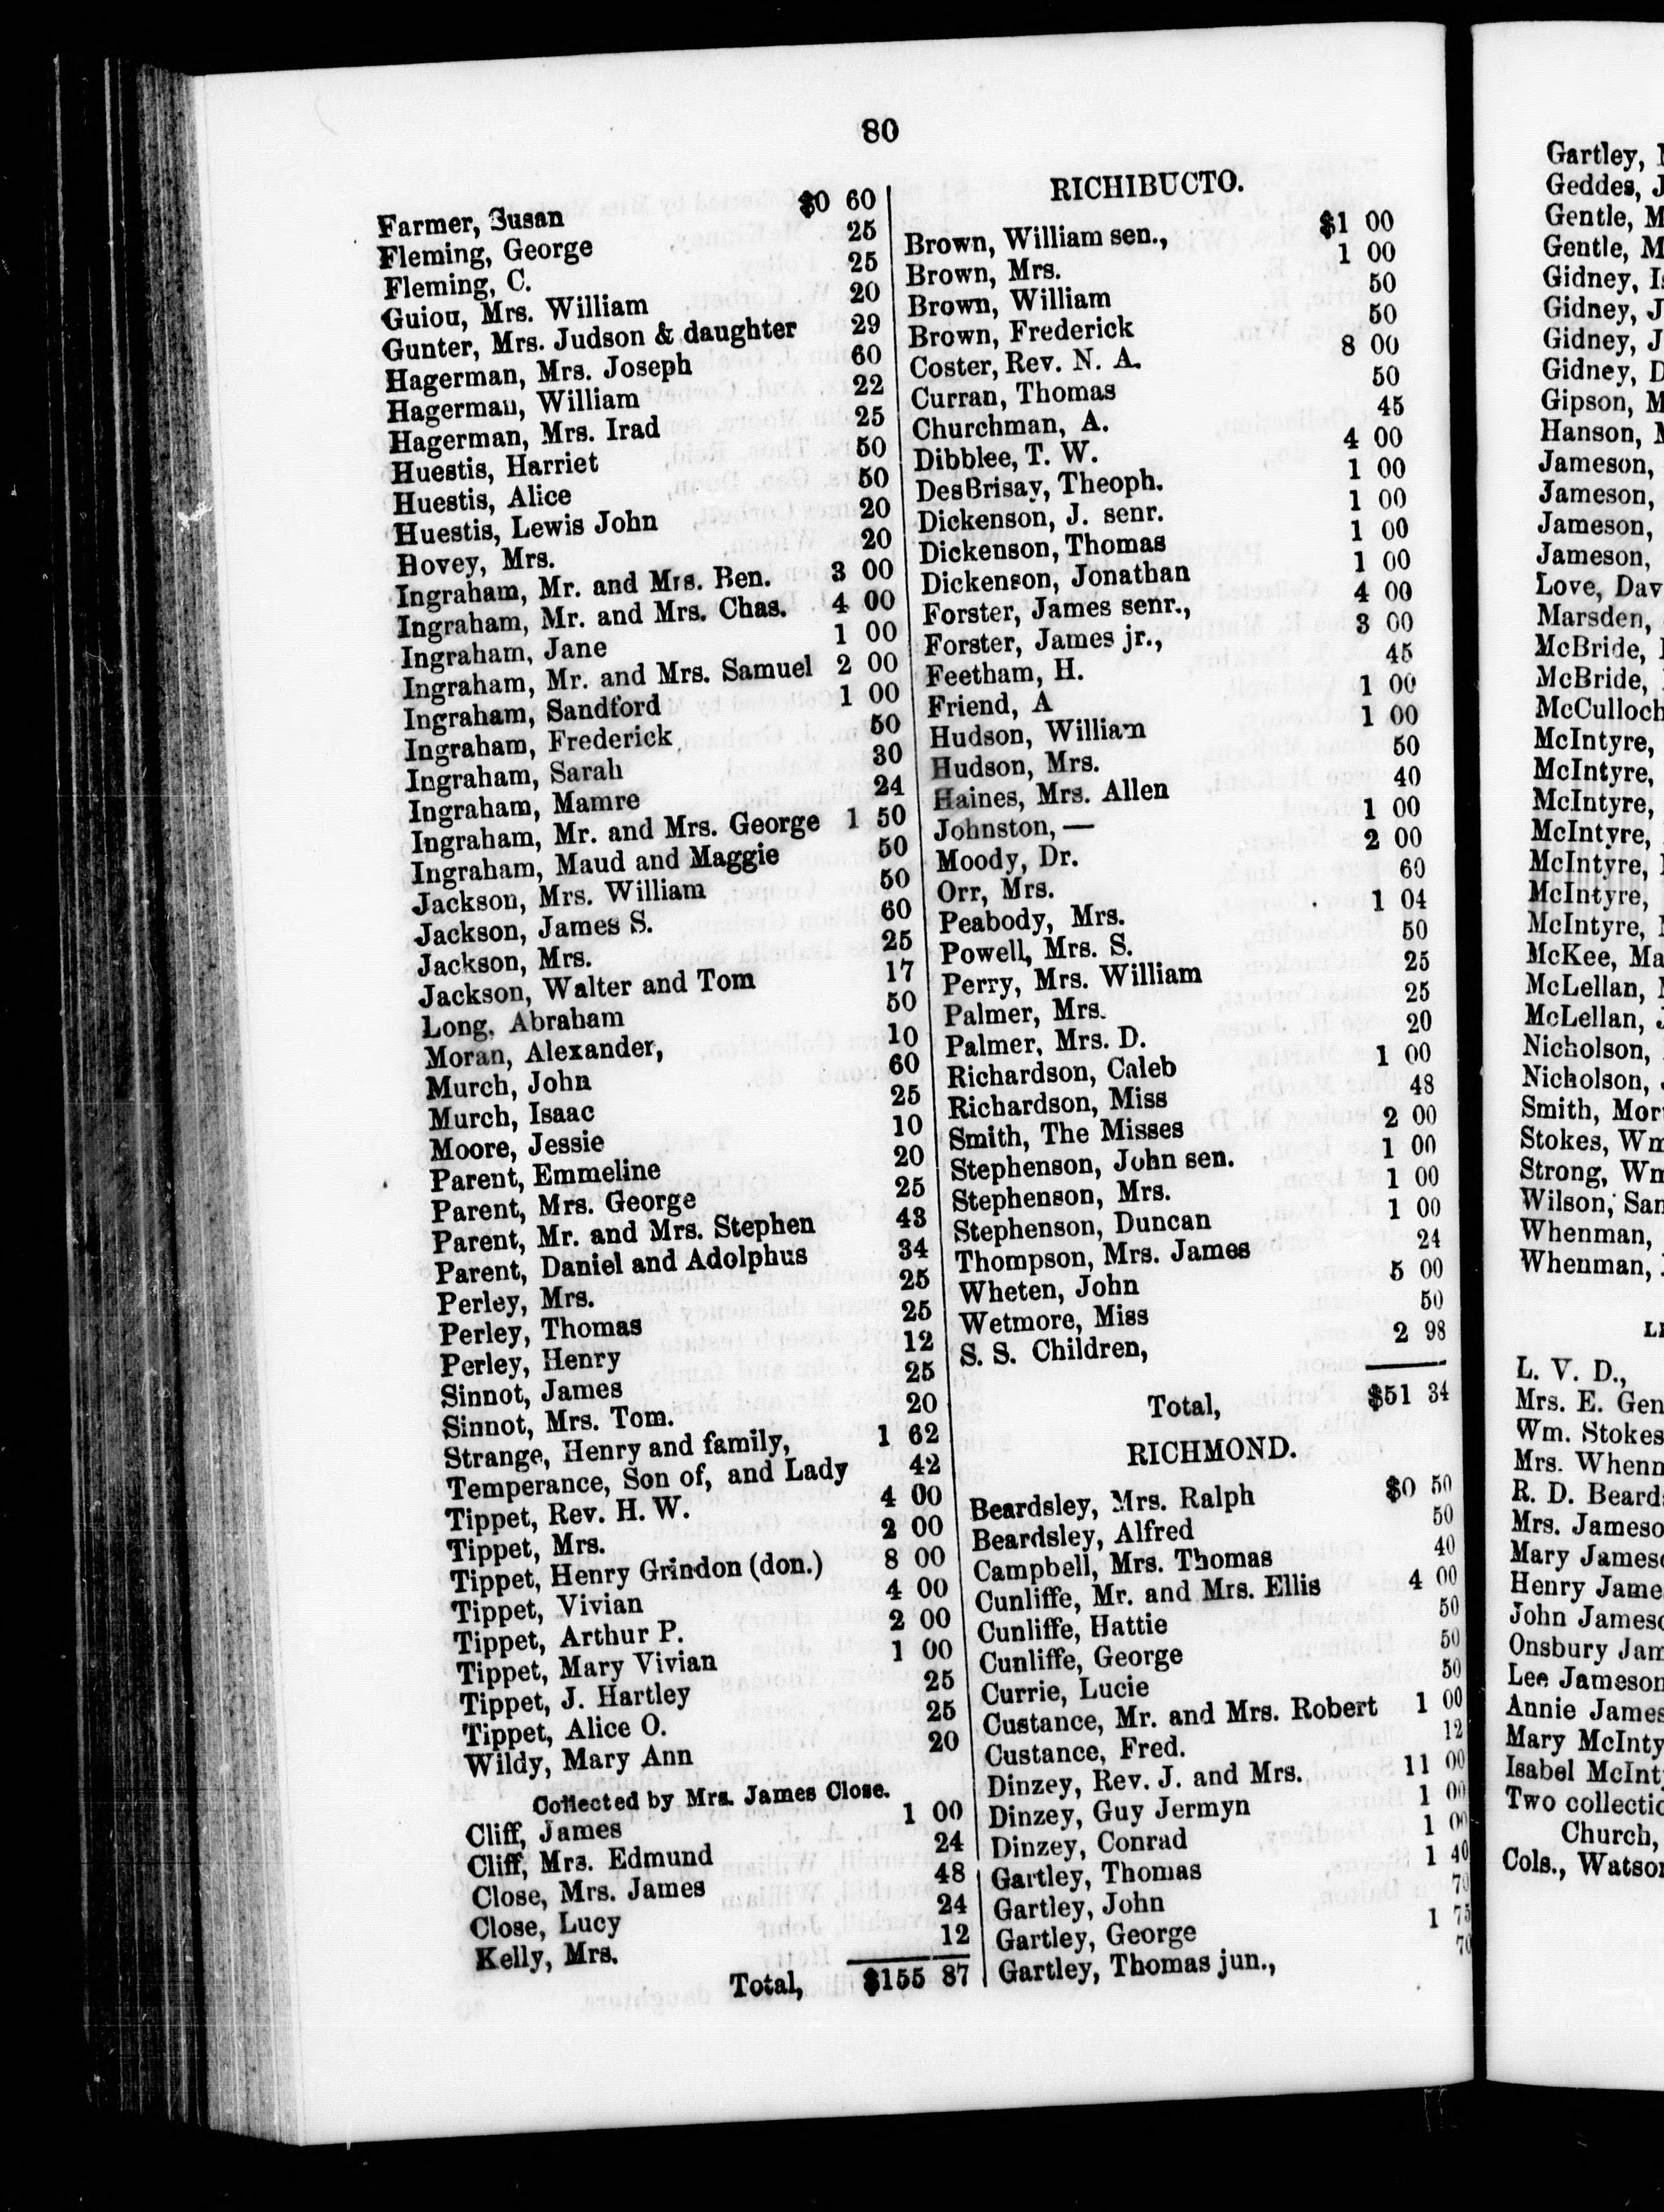 80
Farmer, Susan $0 60
Fleming, George 25
Fleming, C. 25
Guiou, Mrs. William 20
Gunter, Mrs. Judson & daughter 29
Hagerman, Mrs. Joseph 60
Hagerman, William 22
Hagerman, Mrs. Irad 25
Huestis, Harriet 50
Huestis, Alice 50
Huestis, Lewis John 20
Hovey, Mrs. 20
Ingraham, Mr. and Mrs. Ben. 3 00
Ingraham, Mr. and Mrs. Chas. 4 00
Ingraham, Jane 1 00
Ingraham, Mr. and Mrs. Samuel 2 00
Ingraham, Sandford 1 00
Ingraham, Frederick 50
Ingraham, Sarah 30
Ingraham, Mamre 24
Ingraham, Mr. and Mrs. George 1 50
Ingraham, Maud and Maggie 50
Jackson, Mrs. William 50
Jackson, James S. 60
Jackson, Mrs. 25
Jackson, Walter and Tom 17
Long, Abraham 50
Moran, Alexander, 10
Murch, John 60
Murch, Isaac 25
Moore, Jessie 10
Parent, Emmeline 20
Parent, Mrs. George 25
Parent, Mr. and Mrs. Stephen 43
Parent, Daniel and Adolphus 34
Perley, Mrs. 25
Perley, Thomas 25
Perley, Henry 12
Sinnot, James 25
Sinnot, Mrs. Tom. 20
Strange, Henry and family, 1 62
Temperance, Son of, and Lady 42
Tippet, Rev. H. W. 4 00
Tippet, Mrs. 2 00
Tippet, Henry Grindon (don.) 8 00
Tippet, Vivian 4 00
Tippet, Arthur P. 2 00
Tippet, Mary Vivian 1 00
Tippet, J. Hartley 25
Tippet, Alice O. 25
Wildy, Mary Ann 20
Collected by Mrs. James Close.
Cliff, James 1 00
Cliff, Mrs. Edmund 24
Close, Mrs. James 48
Close, Lucy 24
Kelly, Mrs. 12
Total, $155 87
RICHIBUCTO.
Brown, William sen., $1 00
Brown, Mrs. 1 00
Brown, William 50
Brown, Frederick 50
Coster, Rev. N. A. 8 00
Curran, Thomas 50
Churchman, A. 45
Dibblee, T. W. 4 00
DesBrisay, Theoph. 1 00
Dickenson, J. senr. 1 00
Dickenson, Thomas 1 00
Dickenson, Jonathan 1 00
Forster, James senr., 4 00
Forster, James jr., 3 00
Feetham, H. 45
Friend, A 1 00
Hudson, William 1 00
Hudson, Mrs. 50
Haines, Mrs. Allen 40
Johnston, — 1 00
Moody, Dr. 2 00
Orr, Mrs. 60
Peabody, Mrs. 1 04
Powell, Mrs. S. 50
Perry, Mrs. William 25
Palmer, Mrs. 25
Palmer, Mrs. D. 20
Richardson, Caleb 1 00
Richardson, Miss 48
Smith, The Misses 2 00
Stephenson, John sen. 1 00
Stephenson, Mrs. 1 00
Stephenson, Duncan 1 00
Thompson, Mrs. James 24
Wheten, John 5 00
Wetmore, Miss 50
S. S. Children, 2 98
Total, $51 34
RICHMOND.
Beardsley, Mrs. Ralph $0 50
Beardsley, Alfred 50
Campbell, Mrs. Thomas 40
Cunliffe, Mr. and Mrs. Ellis 4 00
Cunliffe, Hattie 50
Cunliffe, George 50
Currie, Lucie 50
Custance, Mr. and Mrs. Robert 1 00
Custance, Fred. 12
Dinzey, Rev. J. and Mrs. 11 00
Dinzey, Guy Jermyn 1 00
Dinzey, Conrad 1 00
Gartley, Thomas 1 40
Gartley, John 70
Gartley, George 1 75
Gartley, Thomas jun., 70
Gartley,
Geddes, J
Gentle, M
Gentle, M
Gidney,
Gidney, J
Gidney, J
Gidney, D
Gipson, M
Hanson,
Jameson,
Jameson,
Jameson,
Jameson,
Love, Dav
Marsden,
McBride,
McBride,
McCulloch
McIntyre,
McIntyre,
McIntyre,
McIntyre,
McIntyre,
McIntyre,
McIntyre,
McKee, Ma
McLellan,
McLellan, J
Nicholson,
Nicholson,
Smith, Mor
Stokes, Wm
Strong, Wm
Wilson, San
Whenman,
Whenman,
L. V. D.,
Mrs. E. Gen
Wm. Stokes
Mrs. Whenn
R. D. Beard
Mrs. Jameso
Mary James
Henry Jame
John James
Onsbury Jam
Lee Jameson
Annie James
Mary McInty
Isabel McInt
Two collectio
Church,
Cols., Watson